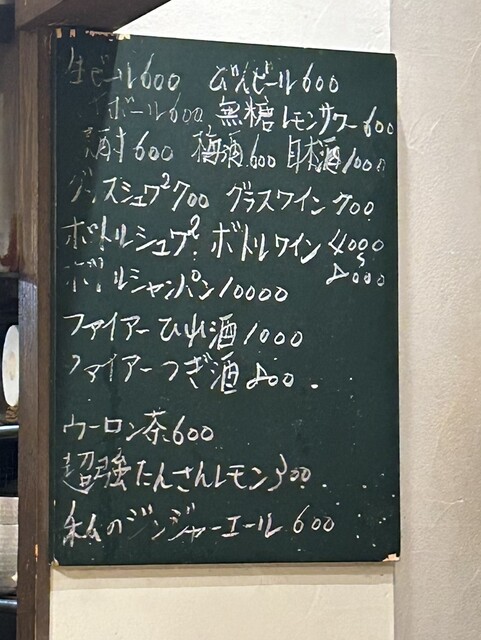 生ビール600 びんビール600
ボール600 無糖レモンサワー600
600 梅酒600 日本酒1000
グラスシュワ²700 グラスワイン700
ボトルシュワ² ボトルワイン4000
〜8000
ボトルシャンパン10000
ファイアーひれ酒1000
ファイアーつぎ酒800
ウーロン茶600
超強たんさんレモン300
私のジンジャーエール600